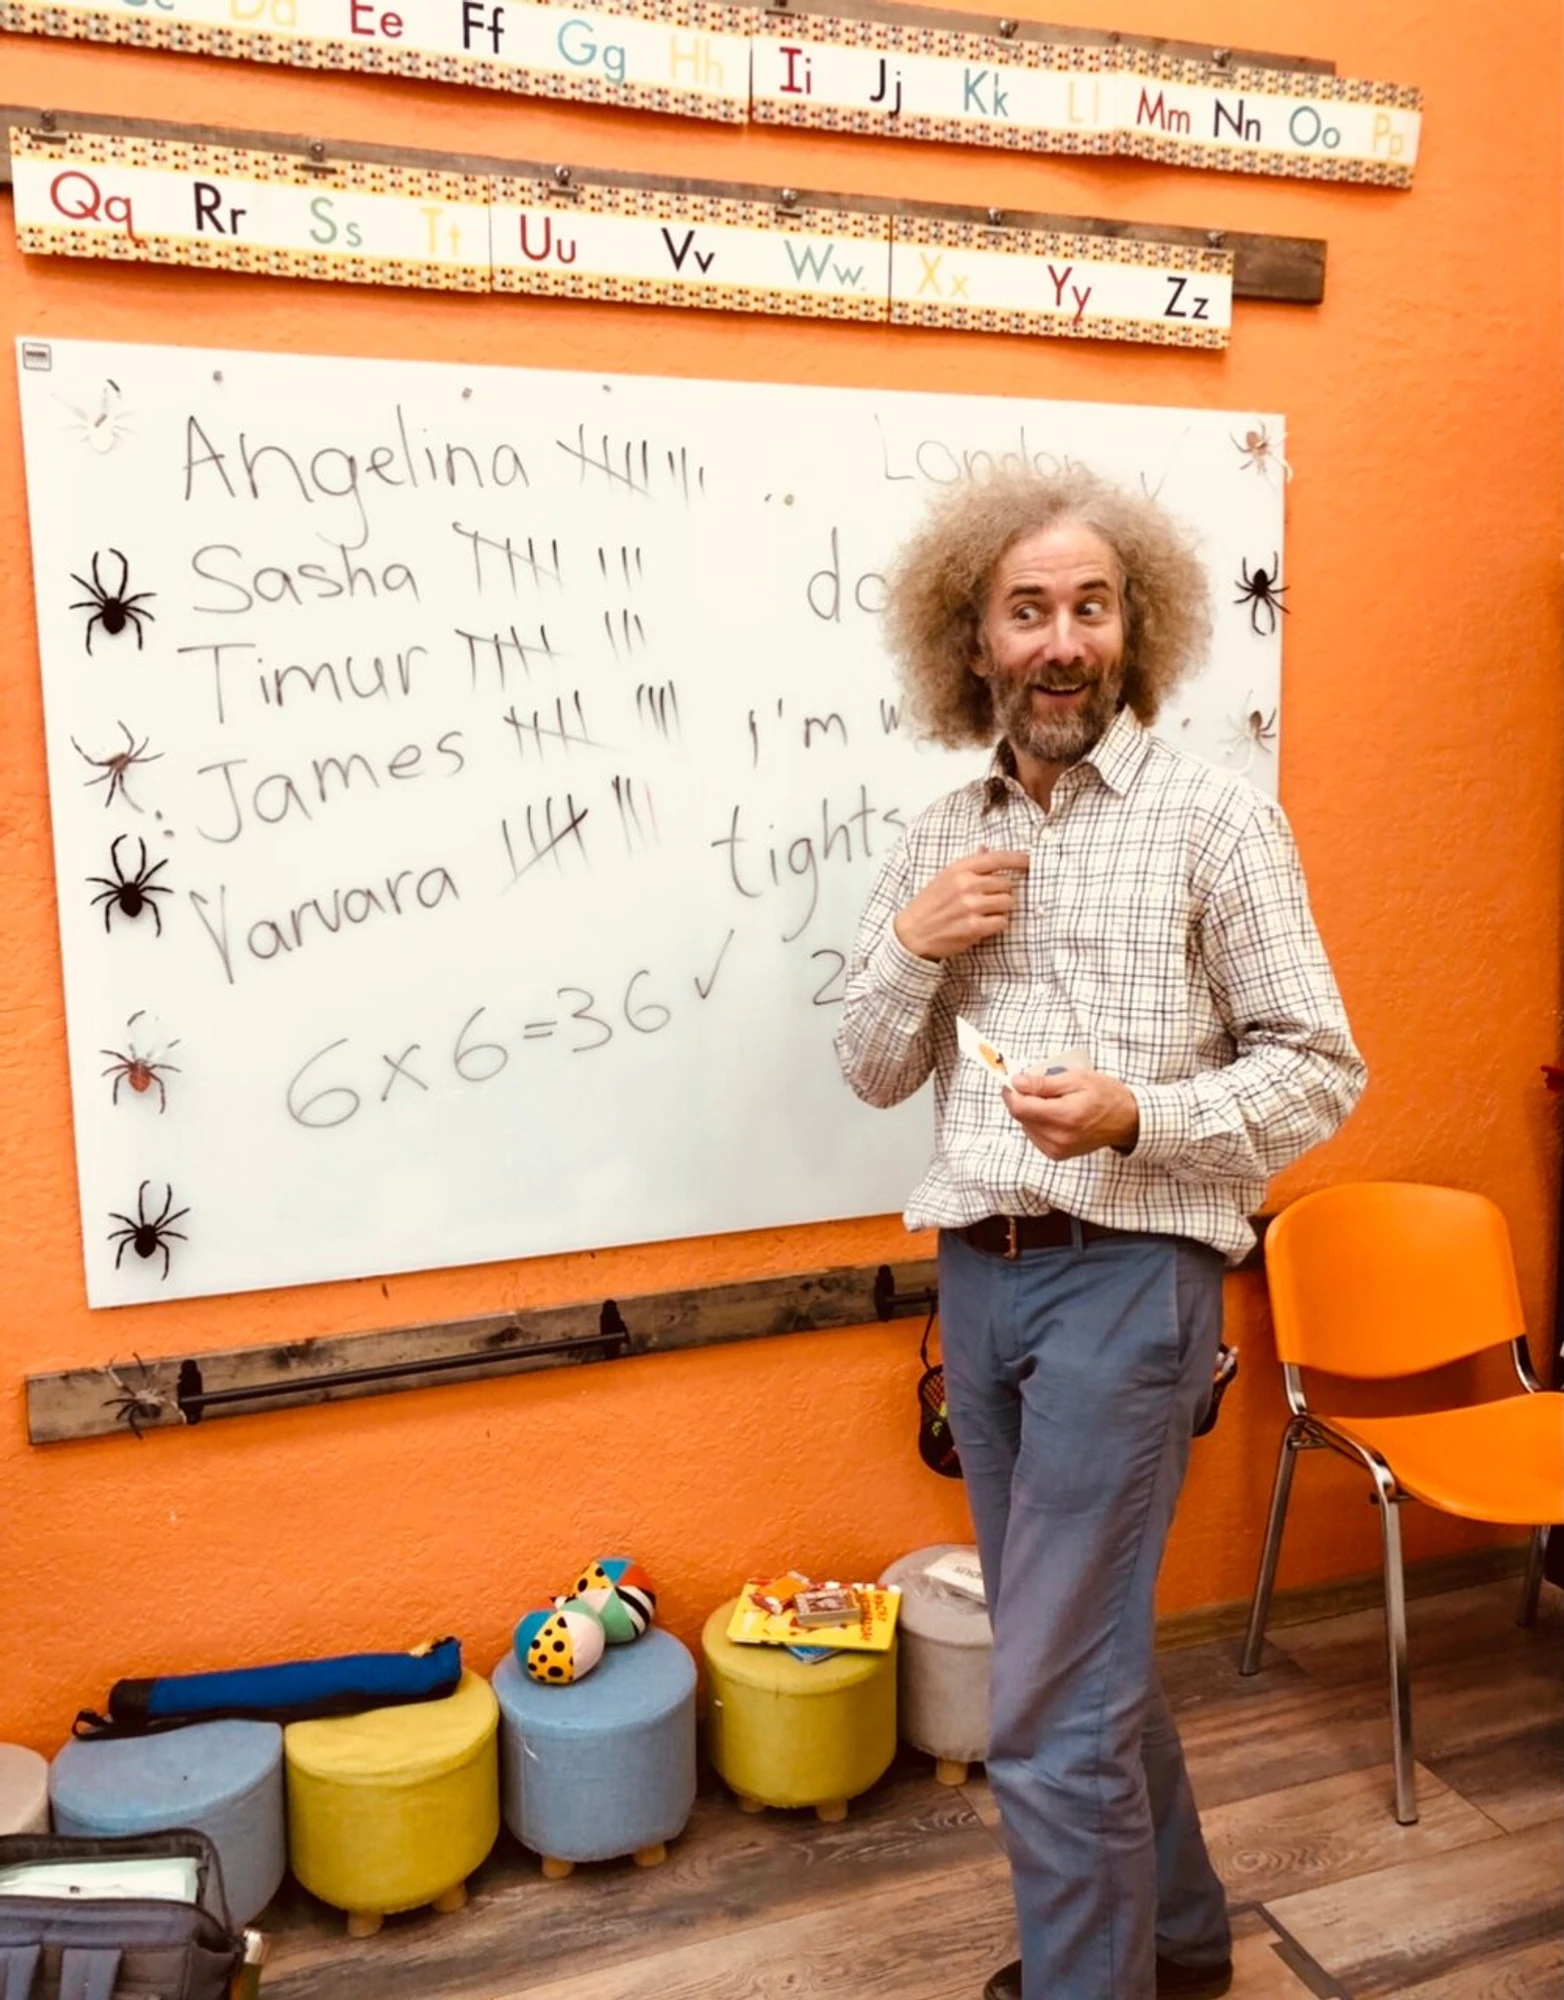 Dd Ee Ff Gg Hh Ii Jj Kk Ll Mm Nn Oo Pp
Qq Rr Ss Tt Uu Vv Ww Xx Yy Zz
Angelina
London
Sasha
do
Timur
James
I'm w
Varvara
tights
6x6=36 ✓
2